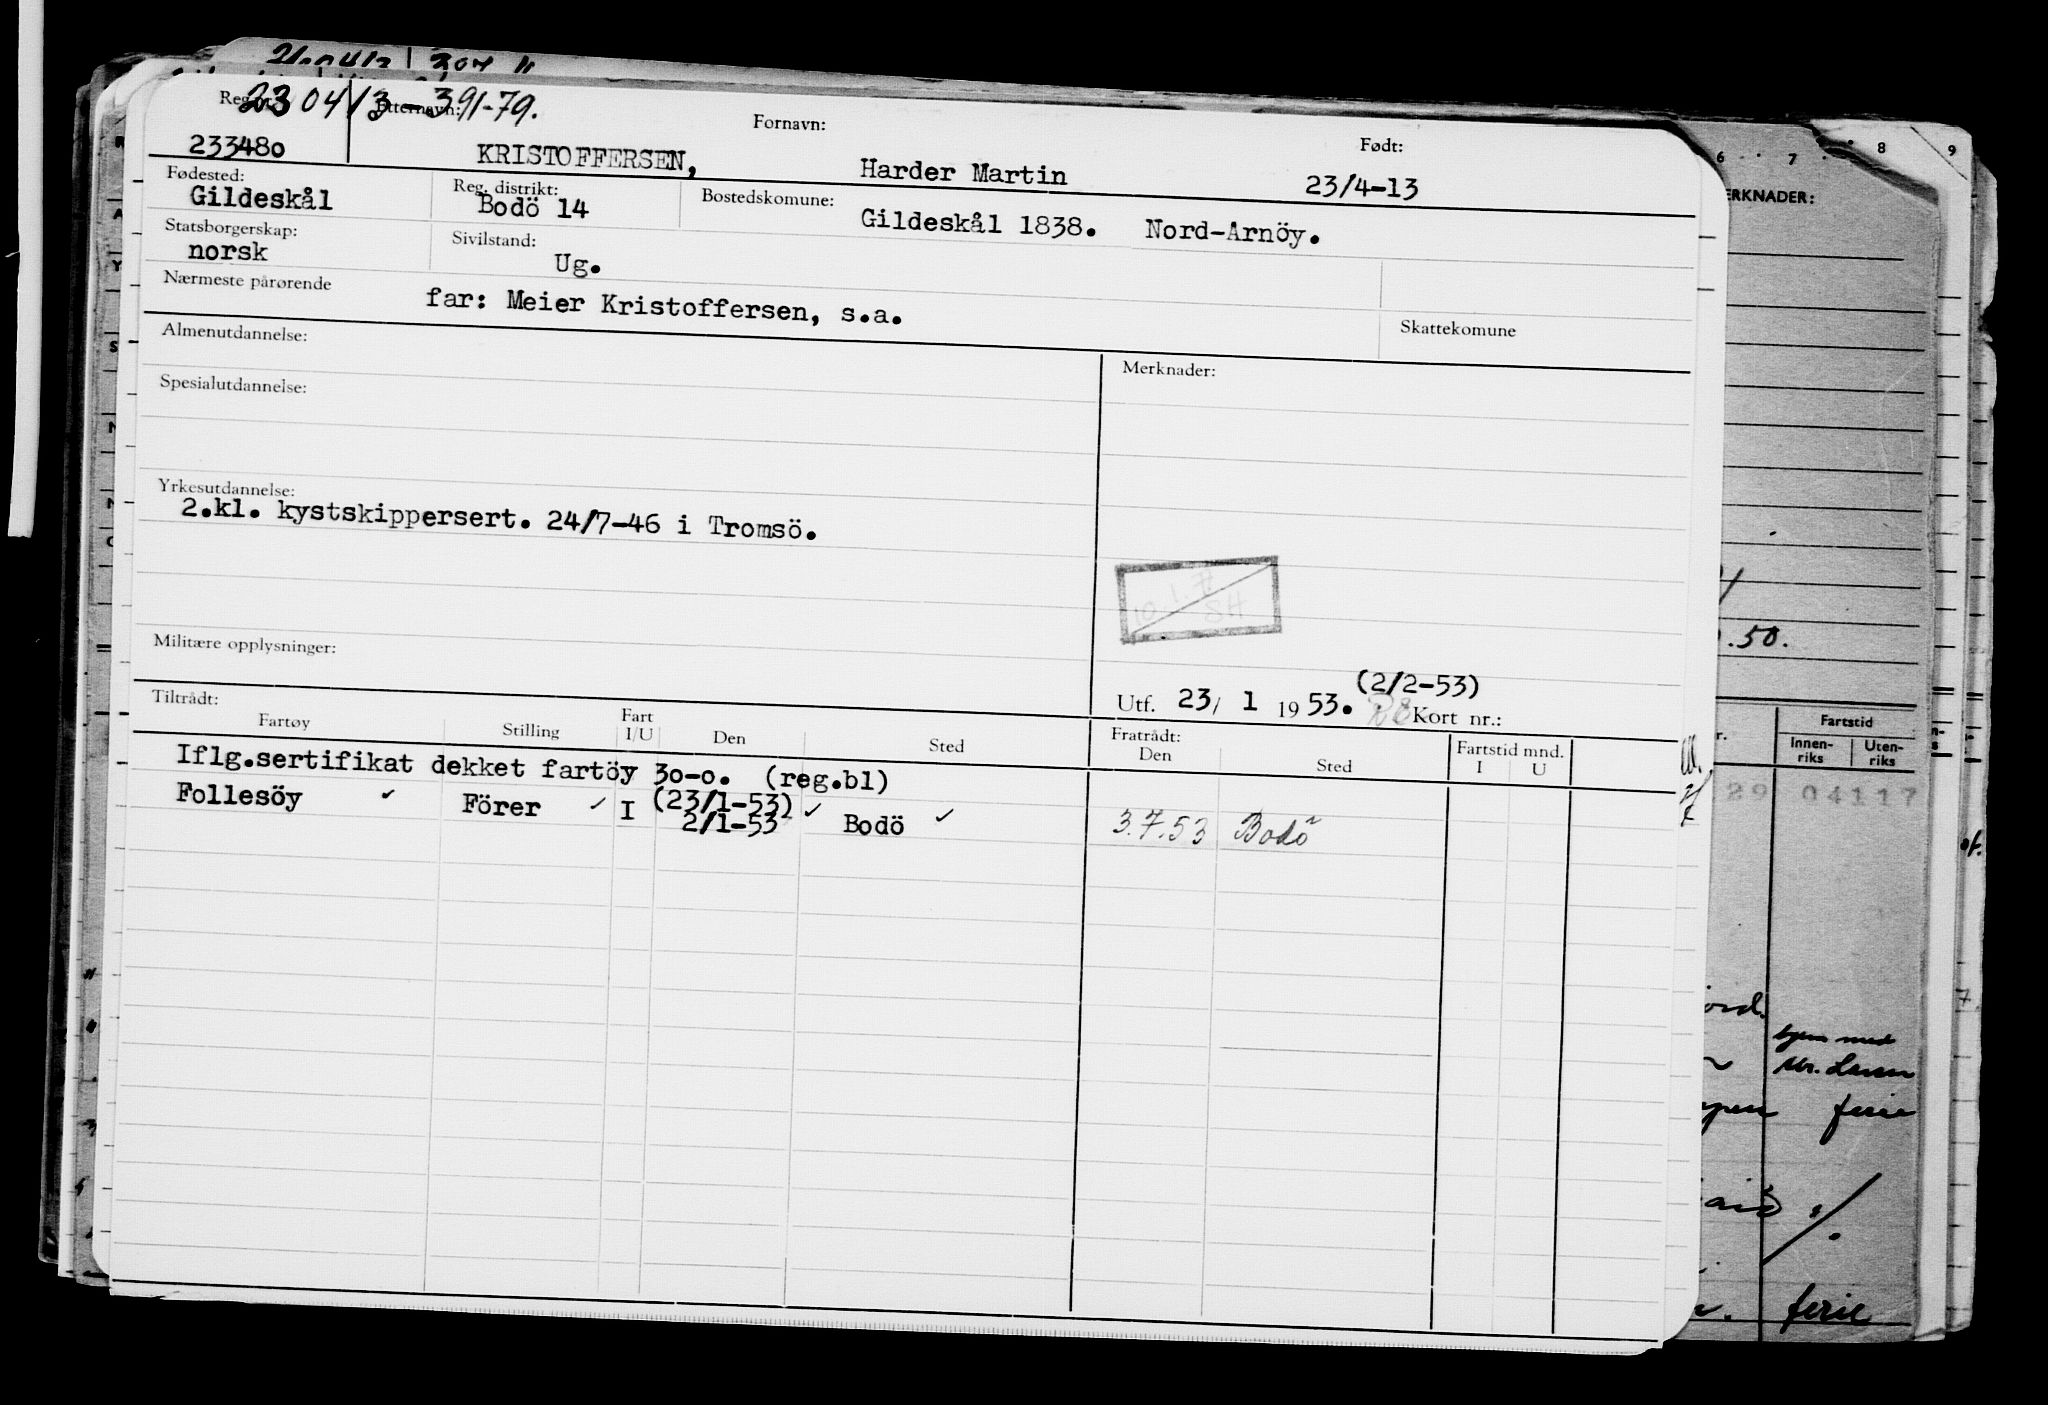 23 04 13 - 391-79.
Etternavn: Fornavn: Født:
233480 KRISTOFFERSEN, Harder Martin 23/4-13
Fødested: Reg. distrikt: Bostedskomune:
Gildeskål Bodö 14 Gildeskål 1838. Nord-Arnöy.
Statsborgerskap: Sivilstand:
norsk Ug.
Nærmeste pårørende
far: Meier Kristoffersen, s.a.
Skattekomune
Almenutdannelse:
Merknader:
Spesialutdannelse:
Yrkesutdannelse:
2.kl. kystskippersert. 24/7-46 i Tromsö.
Militære opplysninger:
(2/2-53)
Utf. 23/ 1 1953. Kort nr.:
Tiltrådt: Fratrådt:
Fartøy Stilling Fart I/U Den Sted Den Sted Fartstid mnd. I U
Iflg.sertifikat dekket fartöy 30-0. (reg.bl)
(23/1-53)
Follesöy ✓ Förer ✓ I 2/1-53 ✓ Bodö ✓ 3.7.53 Bodö
6 7 8 9
ERKNADER:
.50.
Fartstid
Innen-riks Uten-riks
29 04117
hjem med
ferie
ferie